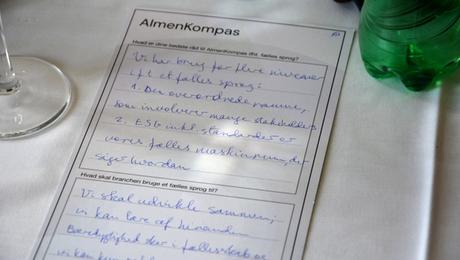 AlmenKompas
Hvad er dine bedste råd til AlmenKompas ift. fælles sprog?
Vi har brug for flere niveauer
ift et fælles sprog:
1. Den overordnede ramme,
som involverer mange stakeholders
2. ESG inkl. standarder er
vores fælles maskinrum, der
siger hvordan
Hvad skal branchen bruge et fælles sprog til?
Vi skal udvikle sammen,
vi kan lære af hinanden
Bæredygtighed sker i fællesskab og
vi kan